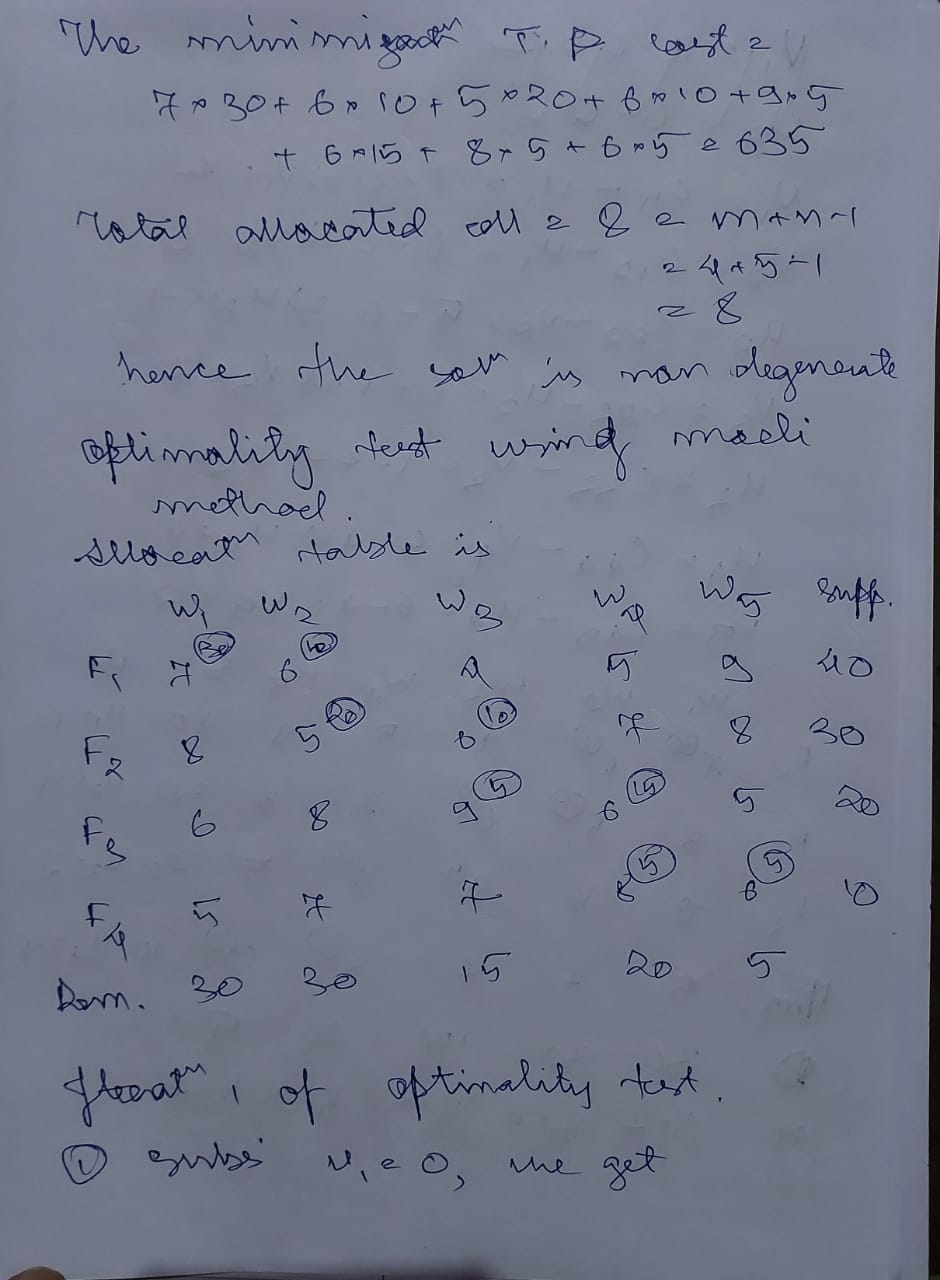 The minimizatn T.P. cost =
7×30+6×10+5×20+6×10+9×5
+ 6×15+ 8×5+6×5=635
Total allocated cell = 8 = m+n-1
= 4+5-1
= 8
hence the soln is non degenerate
optimality test using modi
method.
Allocatn table is
W1 W2 W3 W4 W5 Supp.
F1 7 (30) 6 (10) 4 5 9 40
F2 8 5 (20) 6 (10) 7 8 30
F3 6 8 9 (5) 6 (15) 5 20
F4 5 7 7 8 (5) 6 (5) 10
Dem. 30 30 15 20 5
Iteratn 1 of optimality test.
① subs u1=0, we get